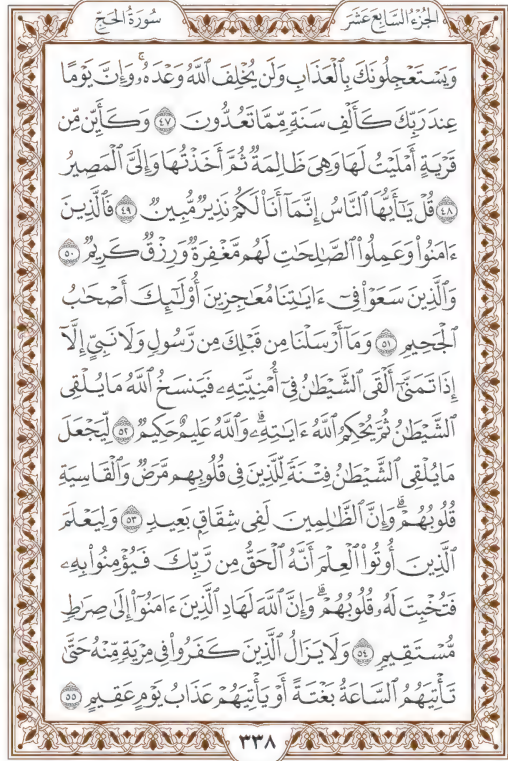 سُورَةُ الحَجِّ الجُزْءُ السَّابِعَ عَشَرَ
وَيَسْتَعْجِلُونَكَ بِٱلْعَذَابِ وَلَن يُخْلِفَ ٱللَّهُ وَعْدَهُۥۚ وَإِنَّ يَوْمًا
عِندَ رَبِّكَ كَأَلْفِ سَنَةٍ مِّمَّا تَعُدُّونَ ٤٧ وَكَأَيِّن مِّن
قَرْيَةٍ أَمْلَيْتُ لَهَا وَهِىَ ظَالِمَةٌ ثُمَّ أَخَذْتُهَا وَإِلَىَّ ٱلْمَصِيرُ
٤٨ قُلْ يَٰٓأَيُّهَا ٱلنَّاسُ إِنَّمَآ أَنَا۠ لَكُمْ نَذِيرٌ مُّبِينٌ ٤٩ فَٱلَّذِينَ
ءَامَنُوا۟ وَعَمِلُوا۟ ٱلصَّٰلِحَٰتِ لَهُم مَّغْفِرَةٌ وَرِزْقٌ كَرِيمٌ ٥٠
وَٱلَّذِينَ سَعَوْا۟ فِىٓ ءَايَٰتِنَا مُعَٰجِزِينَ أُو۟لَٰٓئِكَ أَصْحَٰبُ
ٱلْجَحِيمِ ٥١ وَمَآ أَرْسَلْنَا مِن قَبْلِكَ مِن رَّسُولٍ وَلَا نَبِىٍّ إِلَّآ
إِذَا تَمَنَّىٰٓ أَلْقَى ٱلشَّيْطَٰنُ فِىٓ أُمْنِيَّتِهِۦ فَيَنسَخُ ٱللَّهُ مَا يُلْقِى
ٱلشَّيْطَٰنُ ثُمَّ يُحْكِمُ ٱللَّهُ ءَايَٰتِهِۦۗ وَٱللَّهُ عَلِيمٌ حَكِيمٌ ٥٢ لِّيَجْعَلَ
مَا يُلْقِى ٱلشَّيْطَٰنُ فِتْنَةً لِّلَّذِينَ فِى قُلُوبِهِم مَّرَضٌ وَٱلْقَاسِيَةِ
قُلُوبُهُمْۗ وَإِنَّ ٱلظَّٰلِمِينَ لَفِى شِقَاقٍۭ بَعِيدٍ ٥٣ وَلِيَعْلَمَ
ٱلَّذِينَ أُوتُوا۟ ٱلْعِلْمَ أَنَّهُ ٱلْحَقُّ مِن رَّبِّكَ فَيُؤْمِنُوا۟ بِهِۦ
فَتُخْبِتَ لَهُۥ قُلُوبُهُمْۗ وَإِنَّ ٱللَّهَ لَهَادِ ٱلَّذِينَ ءَامَنُوٓا۟ إِلَىٰ صِرَٰطٍ
مُّسْتَقِيمٍ ٥٤ وَلَا يَزَالُ ٱلَّذِينَ كَفَرُوا۟ فِى مِرْيَةٍ مِّنْهُ حَتَّىٰ
تَأْتِيَهُمُ ٱلسَّاعَةُ بَغْتَةً أَوْ يَأْتِيَهُمْ عَذَابُ يَوْمٍ عَقِيمٍ ٥٥
٣٣٨